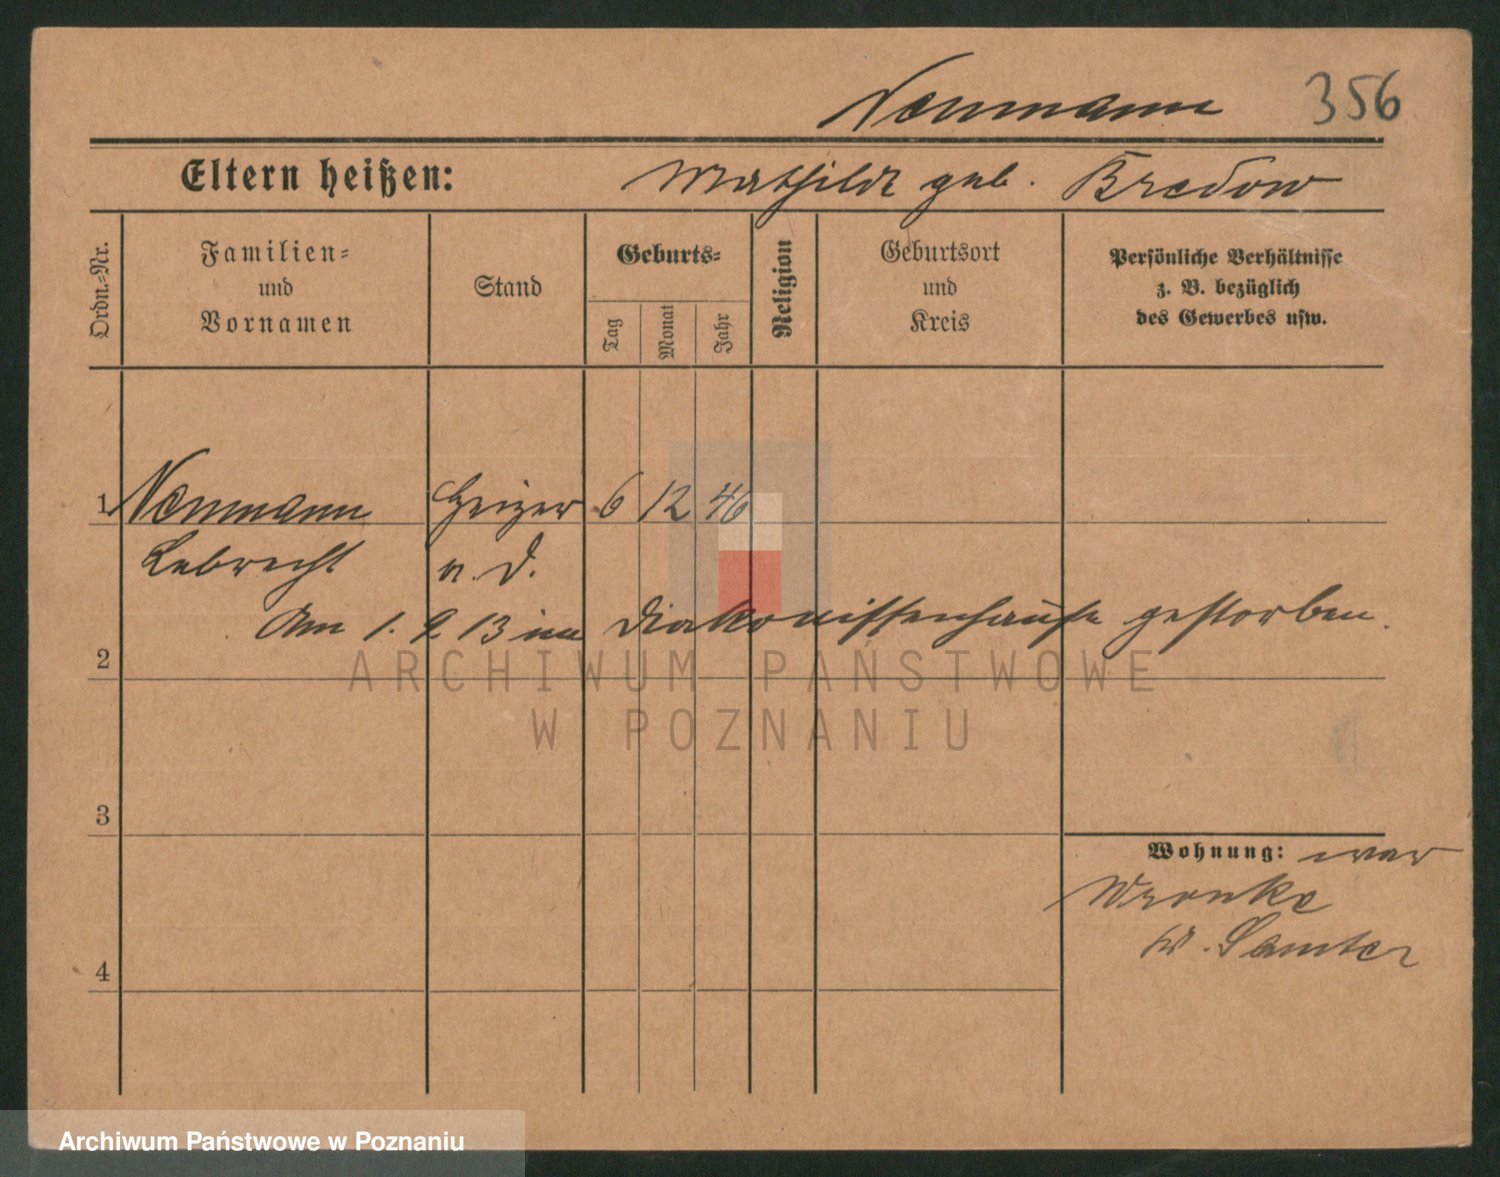 Neumann 356
Eltern heißen: Mathilde geb. Bredow
Ordn.-Nr.
Familien-
und
Vornamen
Stand
Geburts-
Tag
Monat
Jahr
Religion
Geburtsort
und
Kreis
Persönliche Verhältnisse
z. B. bezüglich
des Gewerbes usw.
1 Neumann Heizer 6 12 46
Lebrecht a. D.
Am 1. 9 13 im Diakonissenhause gestorben.
2
ARCHIWUM PAŃSTWOWE
W POZNANIU
3
Wohnung: war
Wronke
Kr. Samter
4
Archiwum Państwowe w Poznaniu